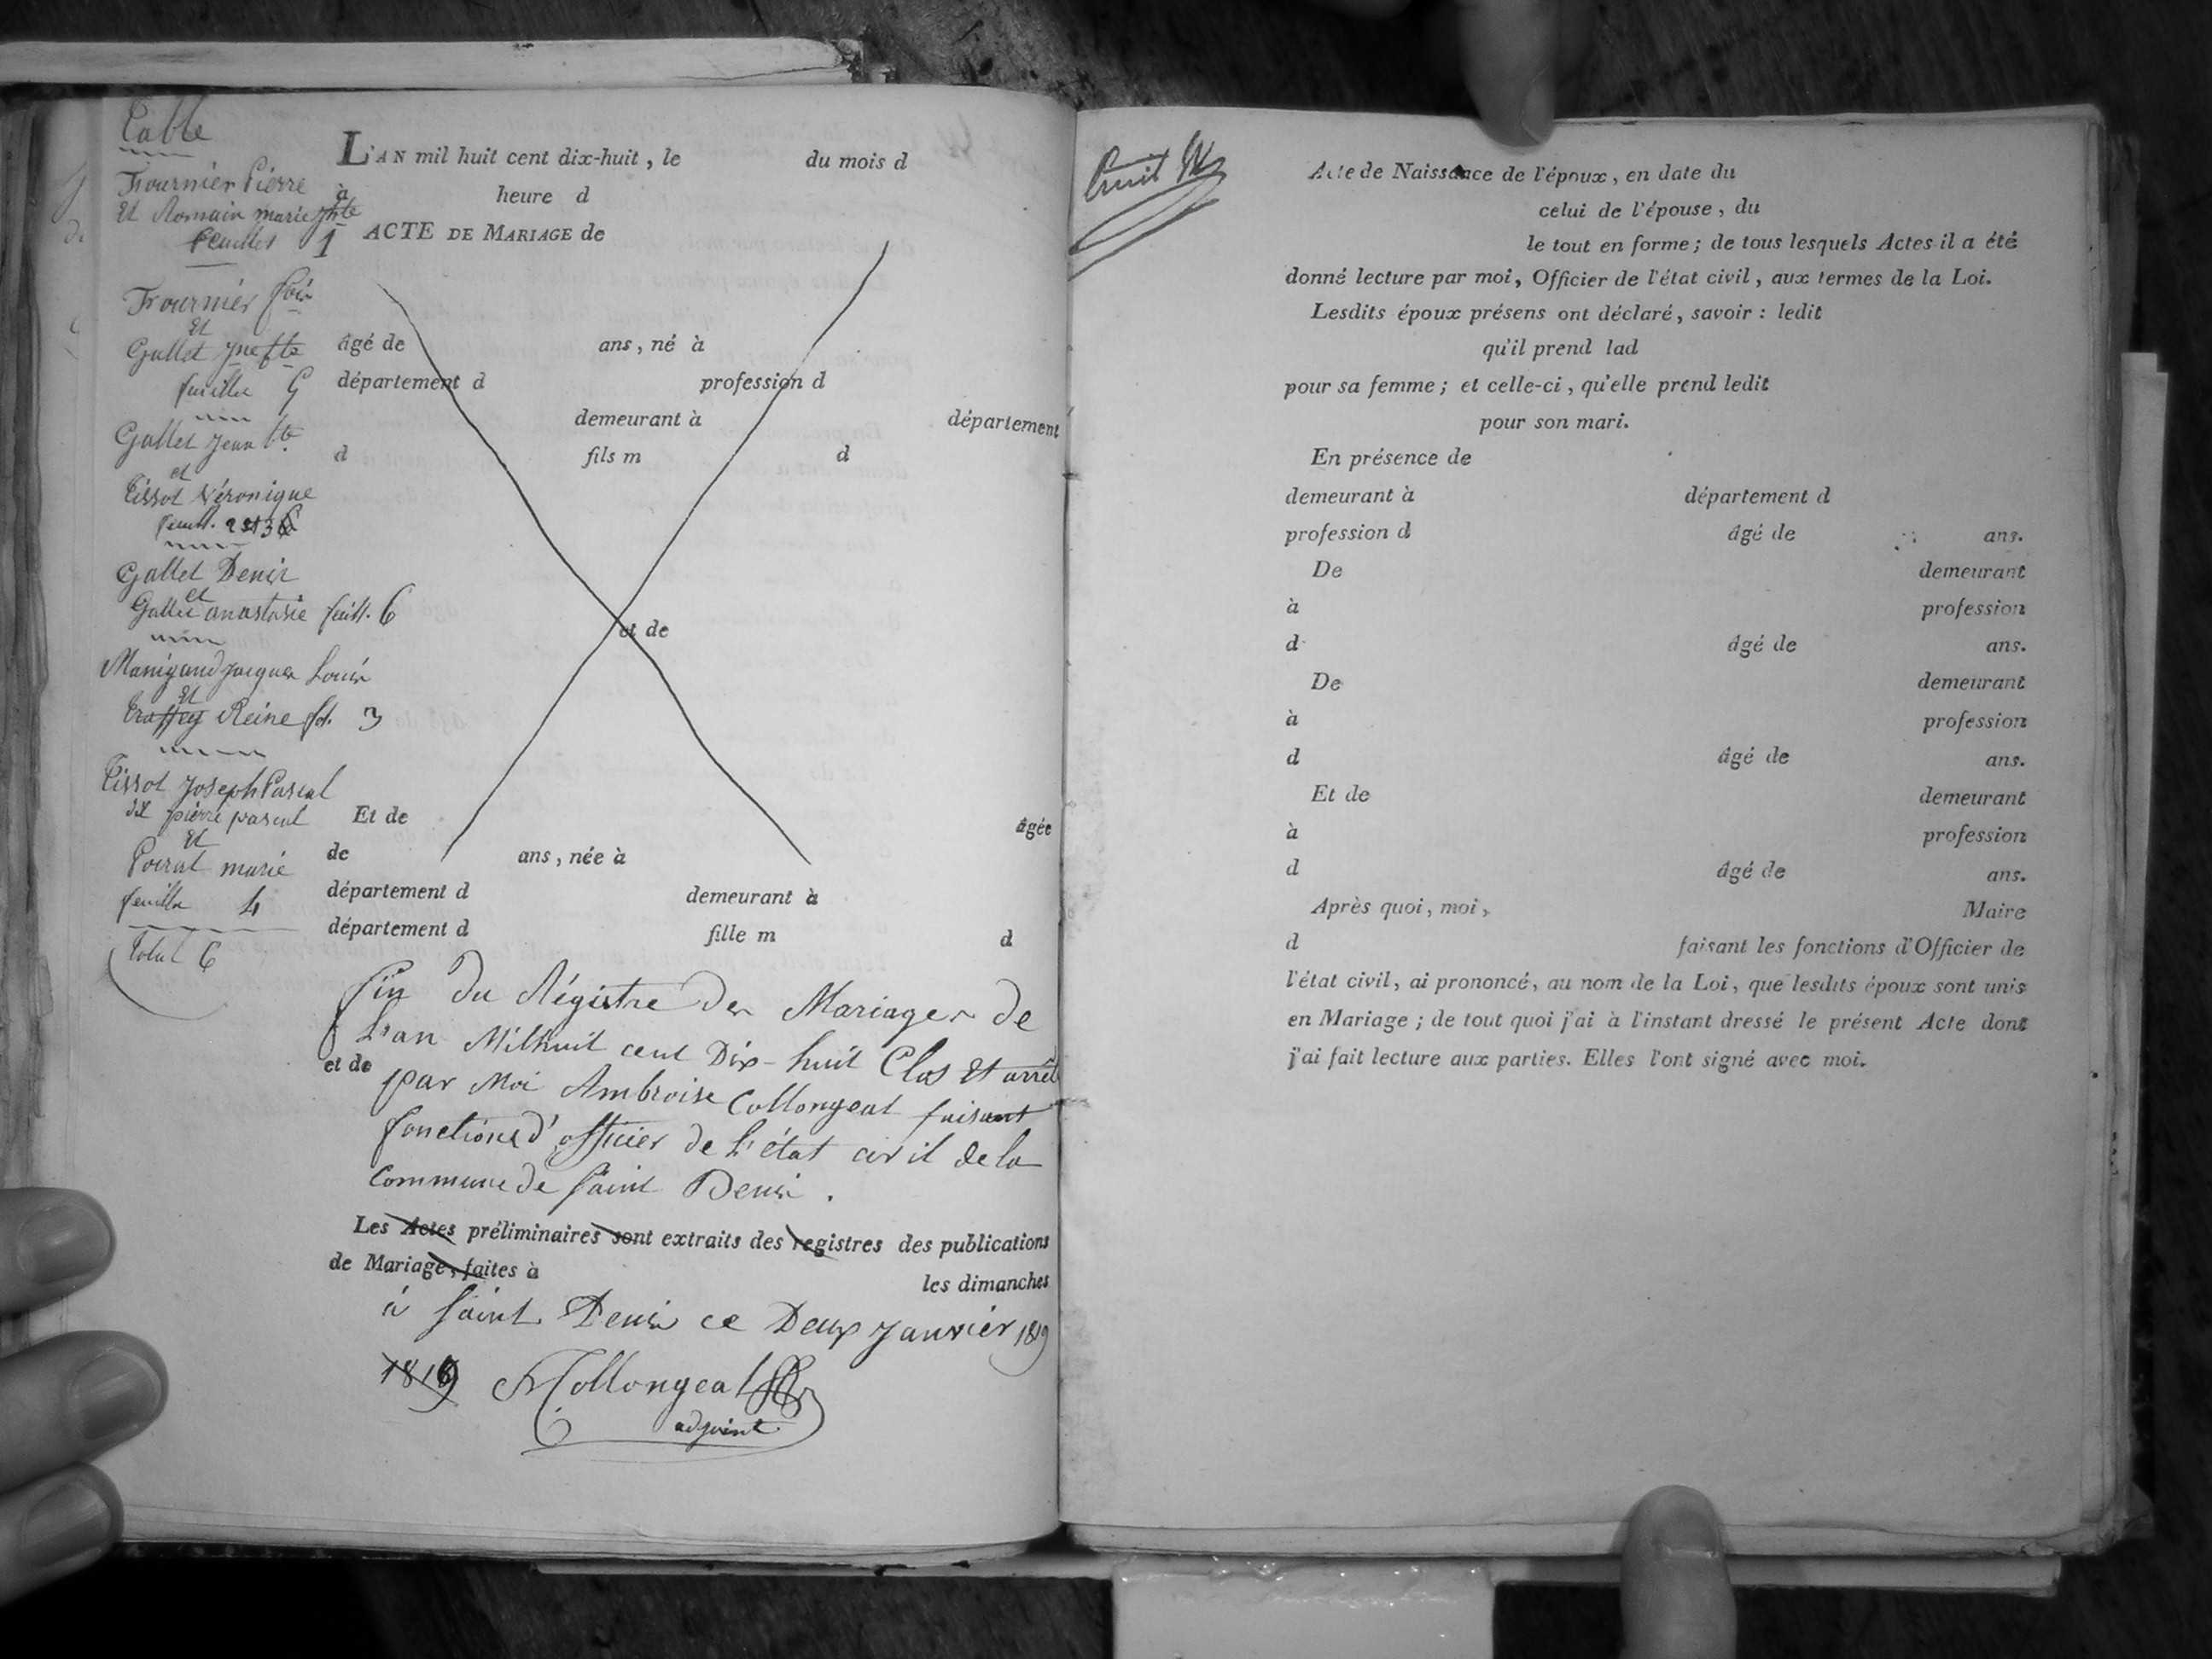 Table
Fournier Pierre
Et Romain marie
feuillet 1
Fournier
Et
Gallet
feuille
Gallet Jean Bte
et
Tissot Véronique
feuill.
Gallet Denis
et
Gallet anastasie feuill. 6
Manigand Jacques Louis
Et
Reine fol. 3
Tissot Joseph Pascal
dit pierre pascal
Et
Poirat marie
feuille 4
Total 6
L'AN mil huit cent dix-huit, le du mois d
à heure d
ACTE DE MARIAGE de
âgé de ans, né à
département d profession d
demeurant à département
d fils m d
et de
Et de âgée
de ans, née à
département d demeurant à
département d fille m d
fin du Régistre des Mariages de
L'an Milhuit cent Dix-huit Clos Et arrêté
et de
par Moi Ambroise Collongeat faisant
fonctions d'officier de L'état civil de la
Commune de Saint Denis.
Les Actes préliminaires sont extraits des registres des publications
de Mariage, faites à les dimanches
à Saint Denis ce Deux Janvier 1819
1819 Collongeat
adjoint
Acte de Naissance de l'époux, en date du
celui de l'épouse, du
le tout en forme; de tous lesquels Actes il a été
donné lecture par moi, Officier de l'état civil, aux termes de la Loi.
Lesdits époux présens ont déclaré, savoir: ledit
qu'il prend lad
pour sa femme; et celle-ci, qu'elle prend ledit
pour son mari.
En présence de
demeurant à département d
profession d âgé de ans.
De demeurant
à profession
d âgé de ans.
De demeurant
à profession
d âgé de ans.
Et de demeurant
à profession
d âgé de ans.
Après quoi, moi, Maire
d faisant les fonctions d'Officier de
l'état civil, ai prononcé, au nom de la Loi, que lesdits époux sont unis
en Mariage; de tout quoi j'ai à l'instant dressé le présent Acte dont
j'ai fait lecture aux parties. Elles l'ont signé avec moi.